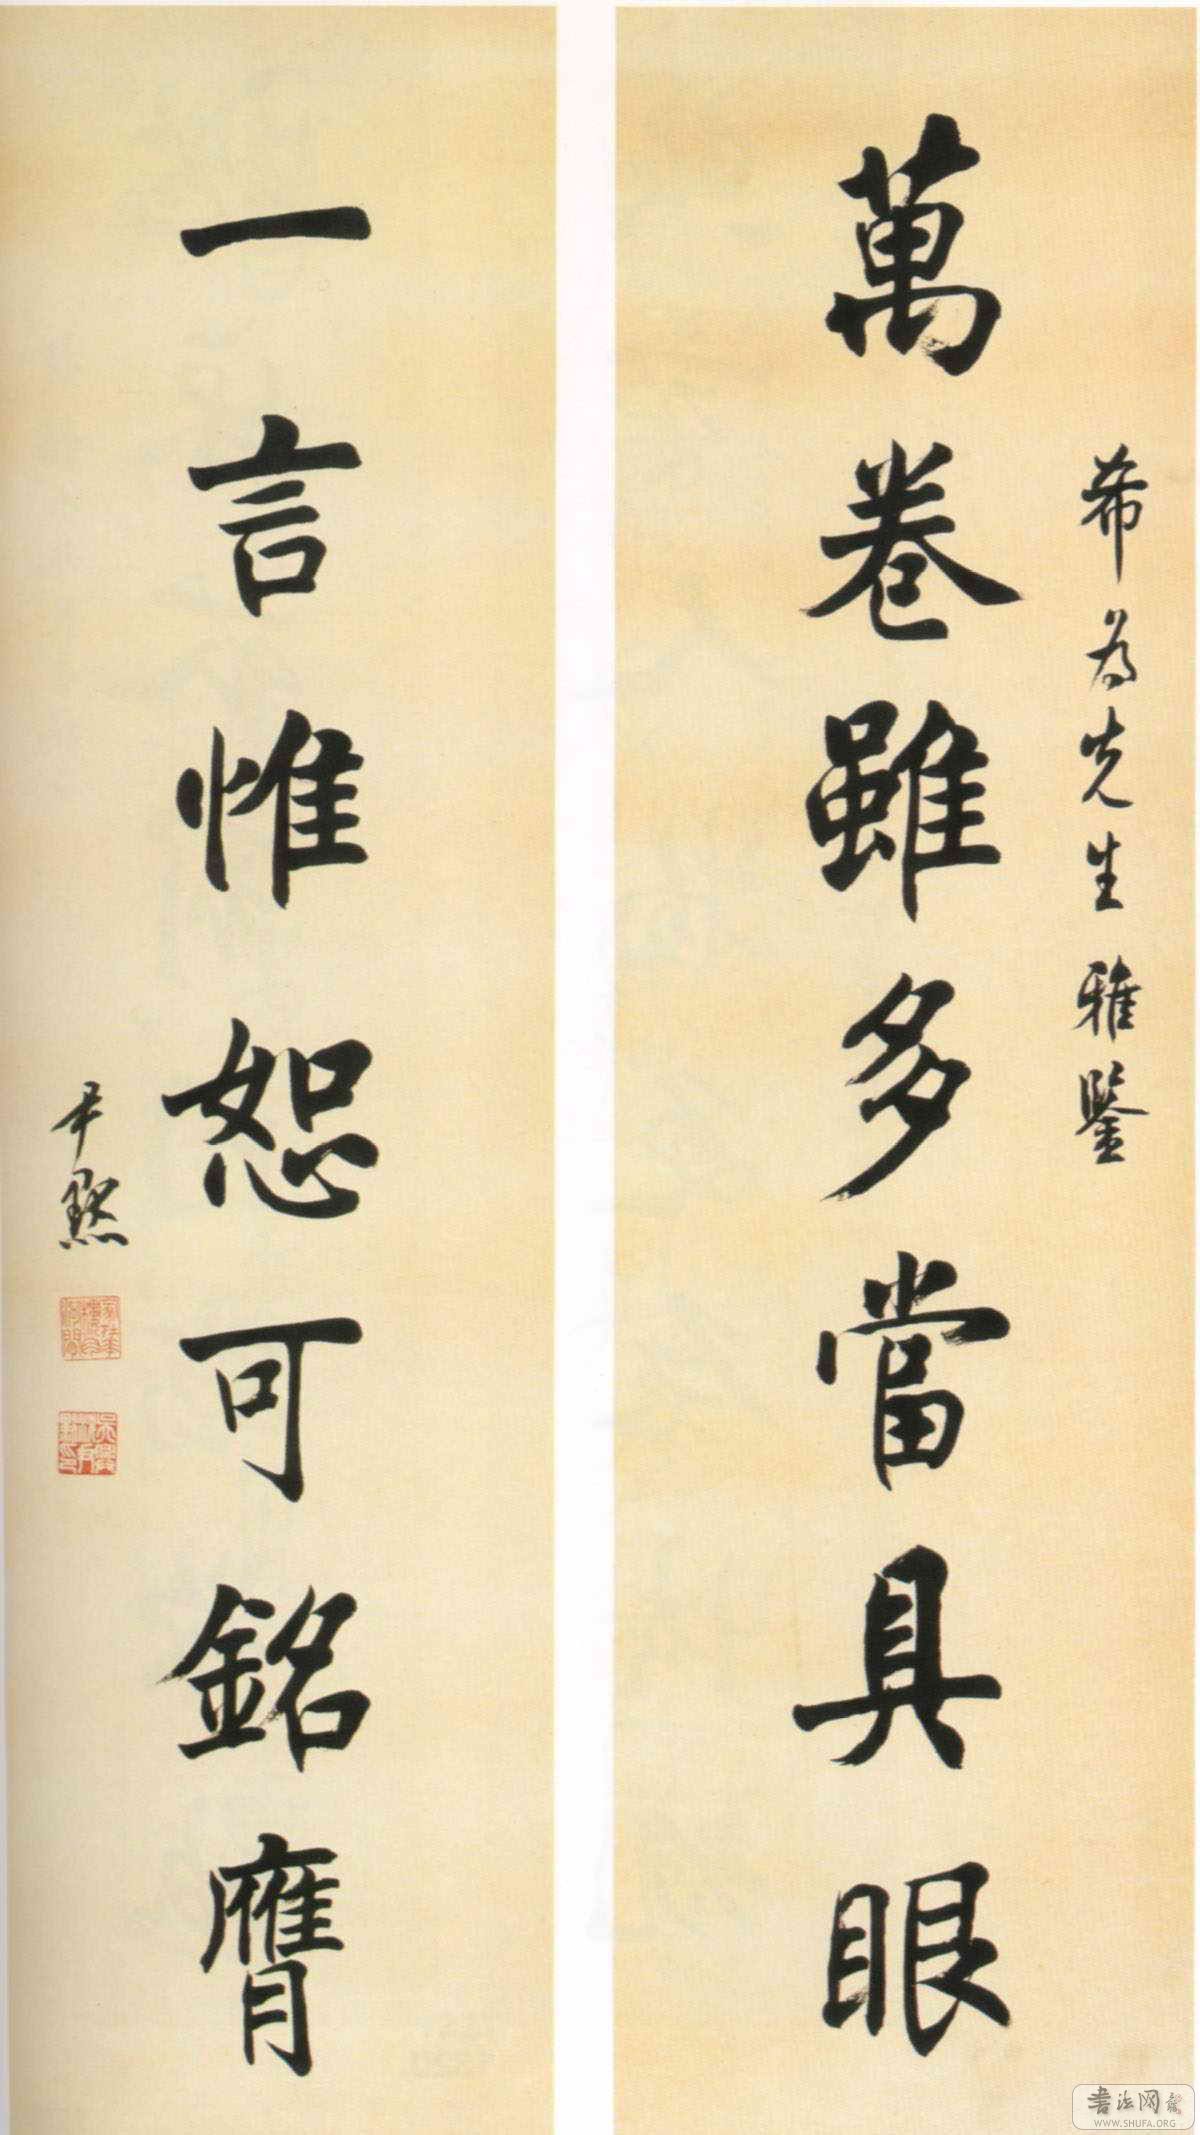 希為先生雅鑒
萬卷雖多當具眼
一言惟恕可銘膺
尹默
书法网
WWW.SHUFA.ORG